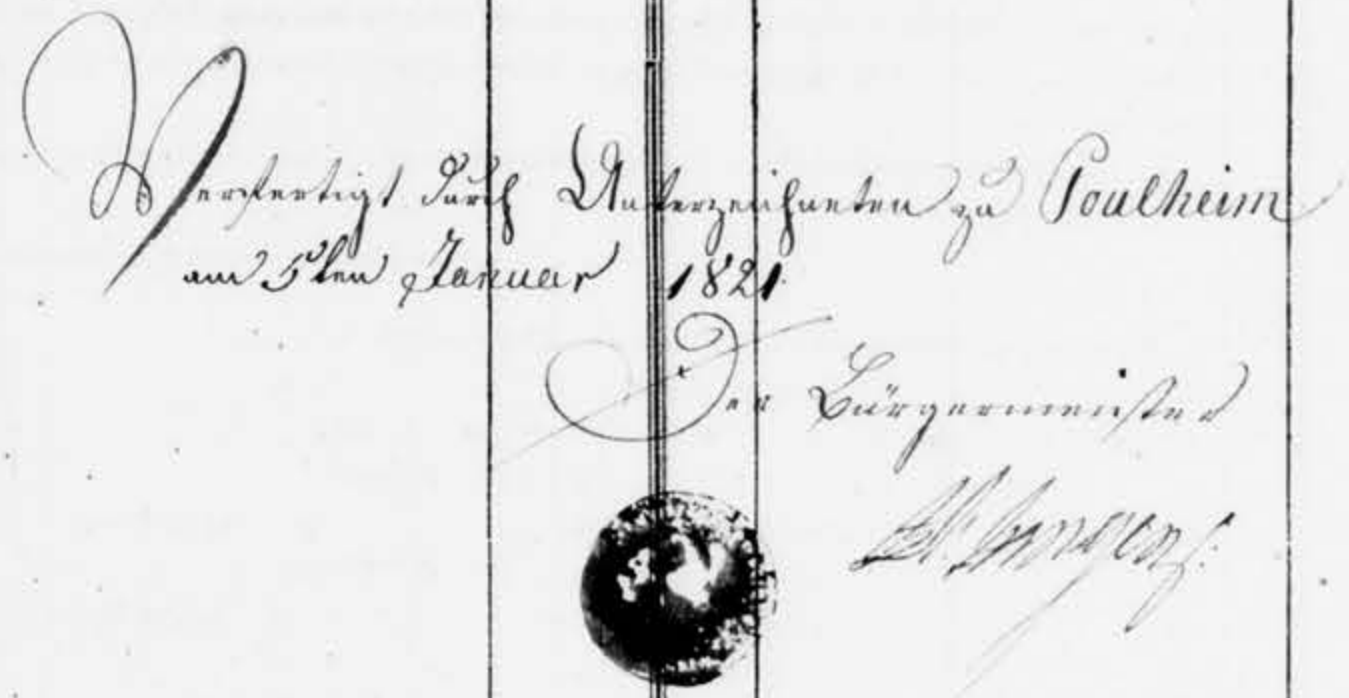 Verfertigt durch Unterzeichneten zu Poulheim
am 5ten Januar 1821.
Der Bürgermeister